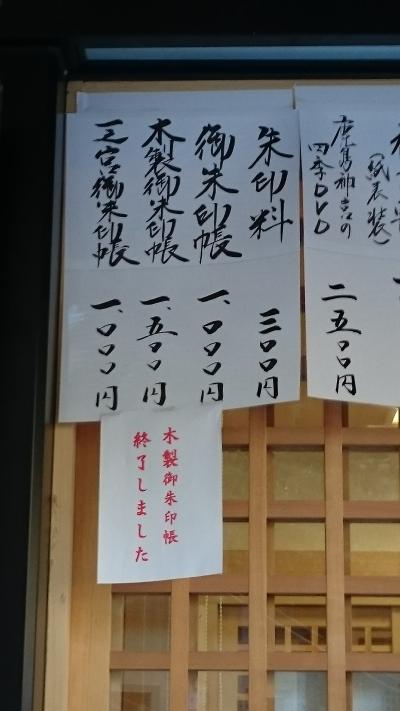 （紙表装）
鹿島神宮の
四季DVD
二五〇〇円
朱印料 三〇〇円
御朱印帳 一、〇〇〇円
木製御朱印帳 一、五〇〇円
一之宮御朱印帳 一、〇〇〇円
木製御朱印帳
終了しました